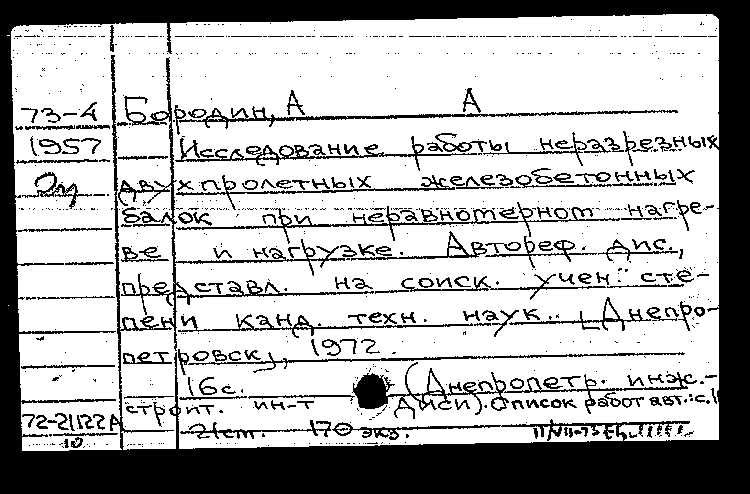 73-4 Бородин, А А
1957 Исследование работы неразрезных
двухпролетных железобетонных
балок при неравномерном нагре-
ве и нагрузке. Автореф. дис.,
представл. на соиск. учен. сте-
пени канд. техн. наук. [Днепро-
петровск], 1972.
16с. (Днепропетр. инж.-
строит. ин-т ДИСИ). Список работ авт.: с.
72-21122А 21см. 170 экз.
10